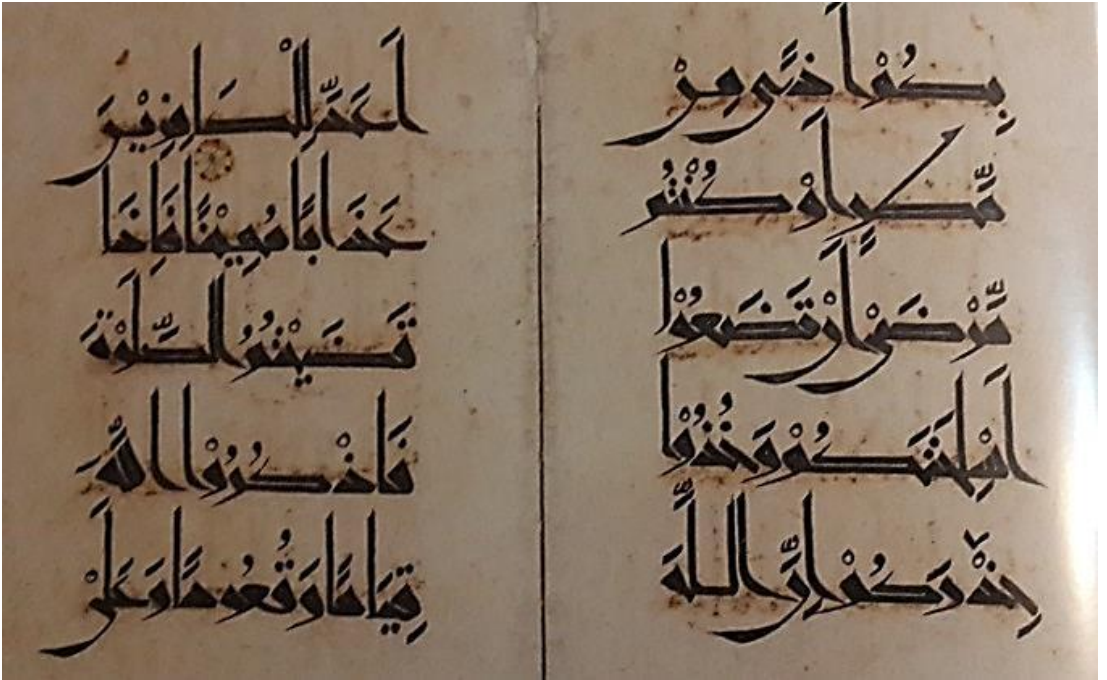 بِكُمْ أَذًى مِنْ
مَّطَرٍ أَوْ كُنْتُمْ
مَّرْضَى أَنْ تَضَعُوْا
أَسْلِحَتَكُمْ وَخُذُوْا
حِذْرَكُمْ إِنَّ اللَّهَ
أَعَدَّ لِلْكَافِرِيْنَ
عَذَابًا مُهِيْنًا فَإِذَا
قَضَيْتُمُ الصَّلَوْةَ
فَاذْكُرُوْا اللَّهَ
قِيَامًا وَقُعُودًا وَعَلَى